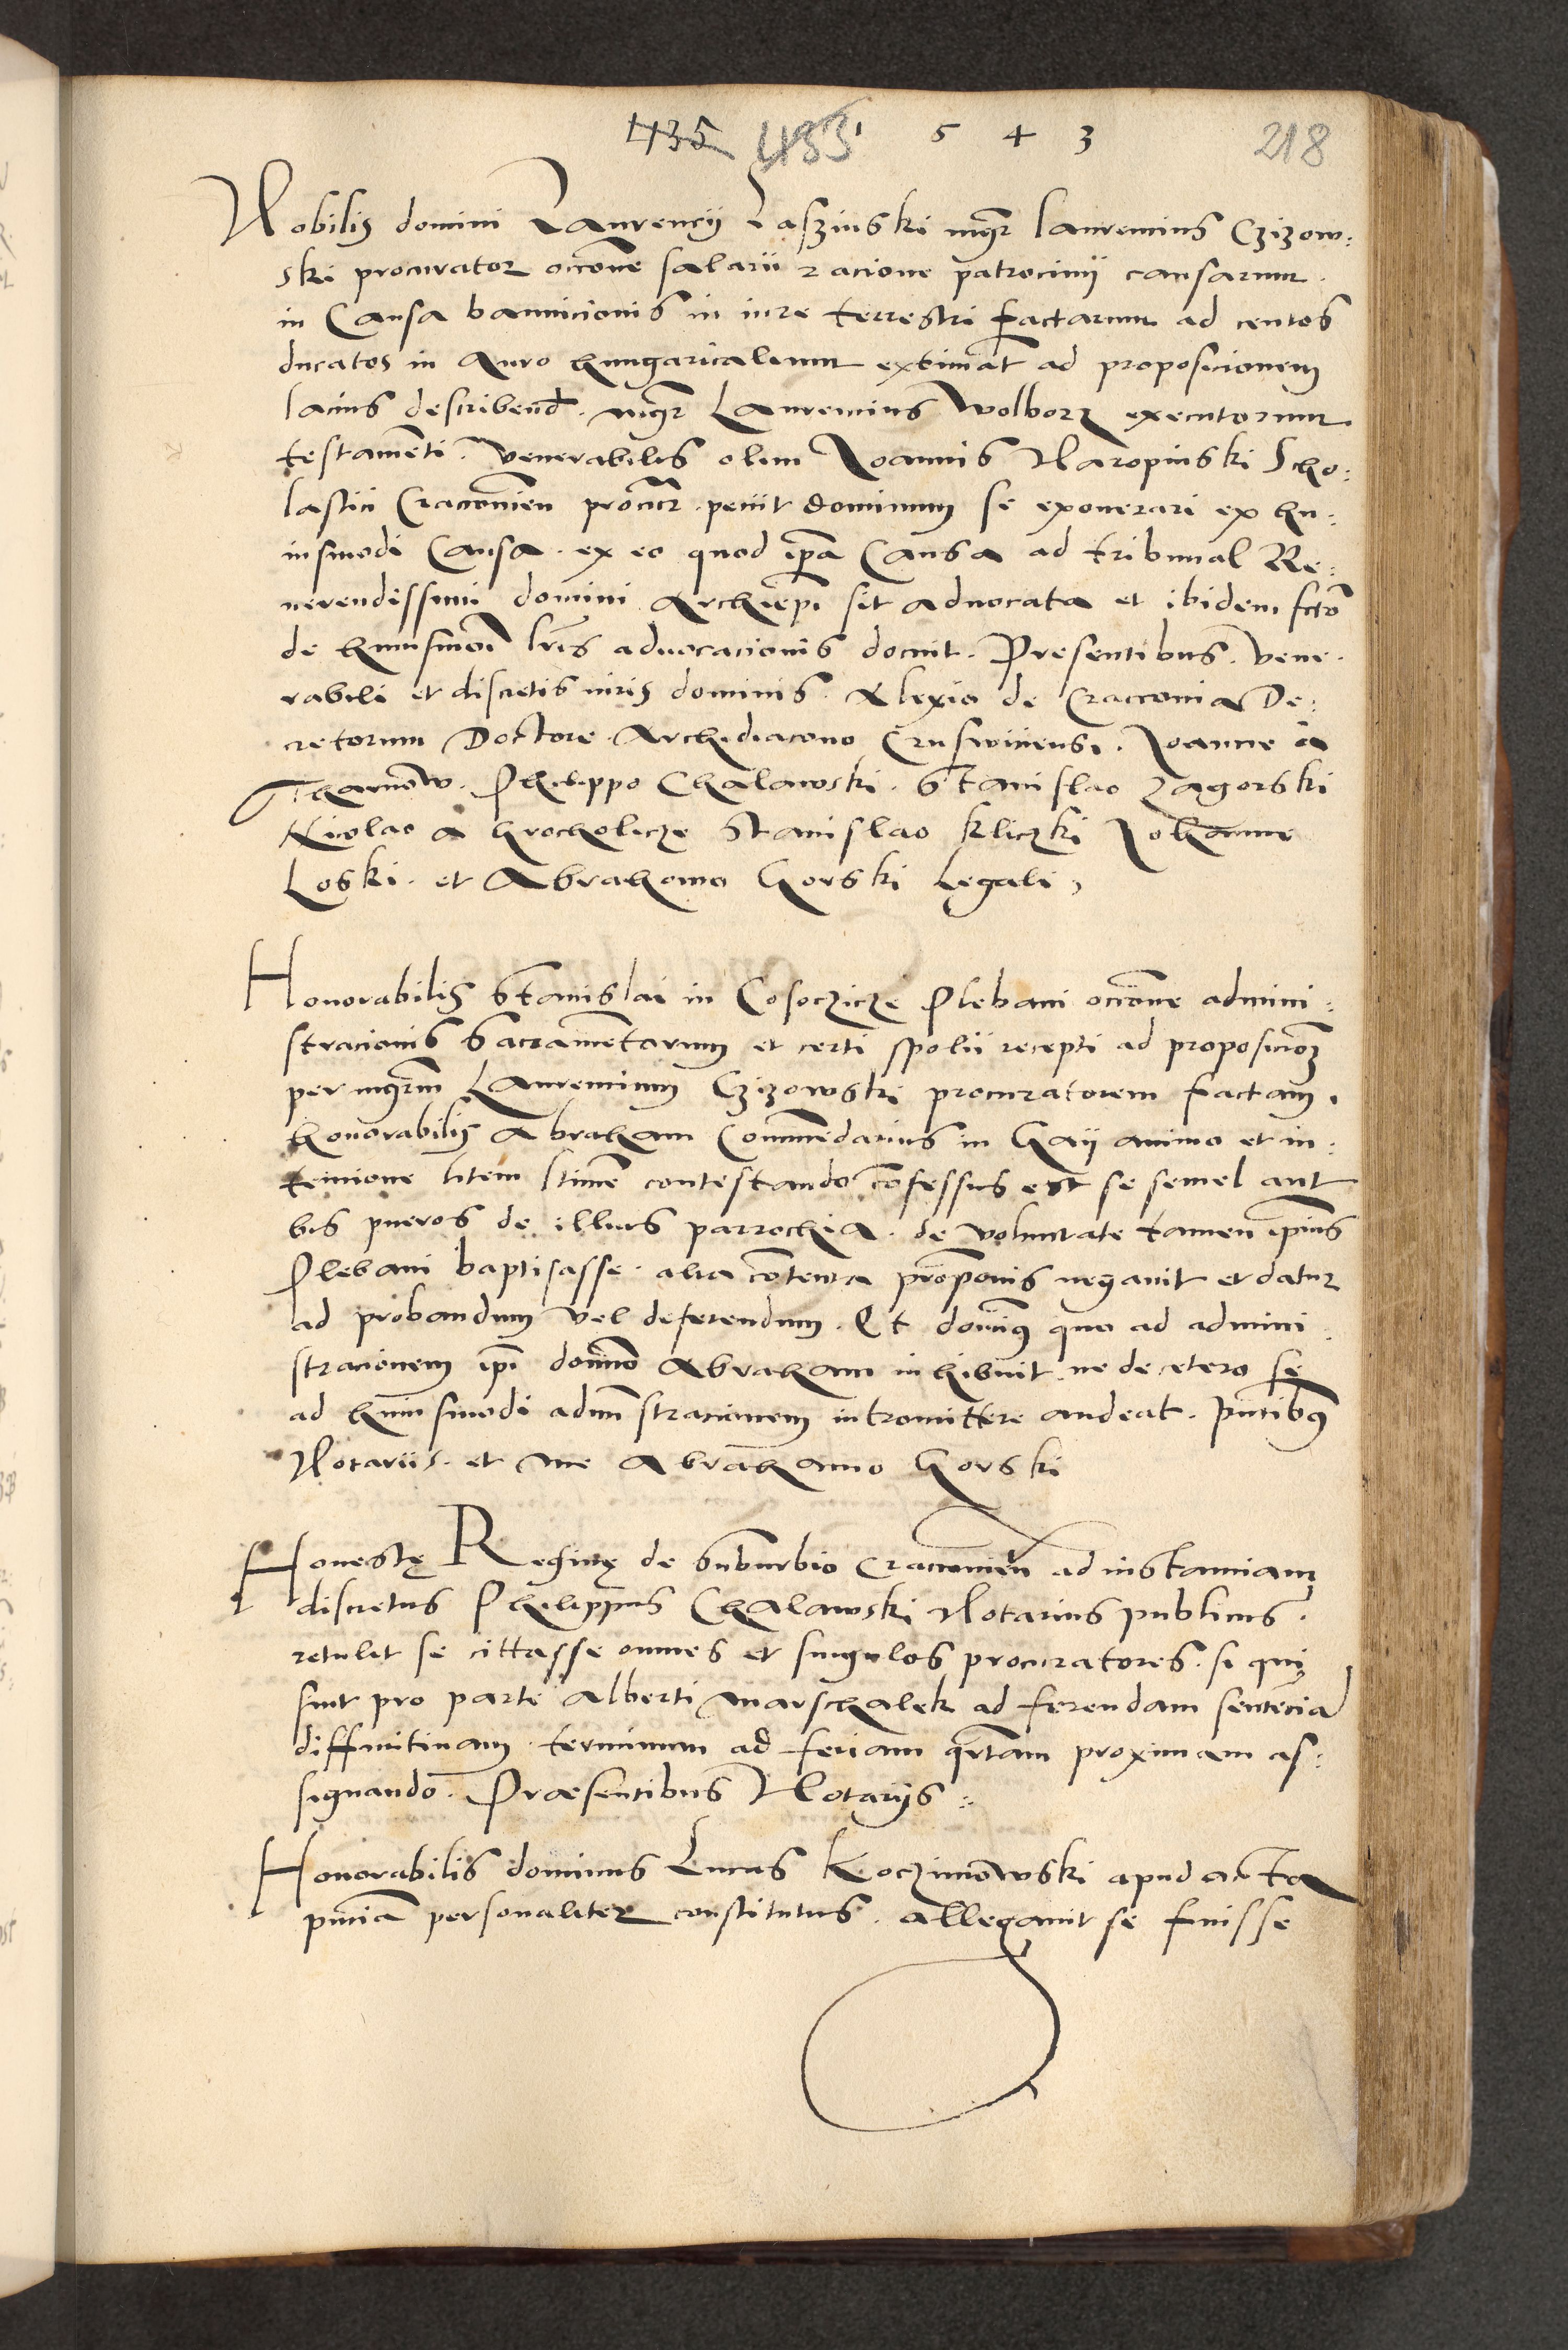 435 433 1 5 4 3 218
Nobilis domini Laurencij Laszinski mgr̄ laurencius Czizow:
ski procurator occone salarii racione patrocinij causarum
in Causa bannicionis in iure terrestri factarum ad centos
ducatos in Auro hungaricalium extimat̄ ad proposicionem
lacius describend. mgr̄ Laurencius Wolborz executorum
testamēti. Venerabilis olim Joannis Naropinski Scho:
lastici Cracouien procūr. peciit dominum se exonerari ex hu:
iusmodi Causa. ex eo quod ip̄a Causa ad tribunal Re:
uerendissimi domini Archiep̄i sit aduocata et ibidem fct̄o
de huiusmōi lr̄is aduocacionis docuit. Presentibus. Vene
rabili et discretis uiris dominis. Alexio de Craccouia De:
cretorum Doctore Archidiacono Cruswiciensi. Joanne a
Tharnow. Philippo Chalawski. Stanislao Zagorski
Nicolao a hrocholicze Stanislao Kliczki Johanne
Loski. et Abrahamo Gorski Legali,
Honorabilis Stanislai in Cosoczicze Plebani occōne admini:
stracionis Sacramētorum et certi spolii recepti ad proposicioȝ
per mgrm̄ Laurencium Czizowski procuratorem factam.
honorabilis Abraham Commēdarius in Gaij animo et in:
tencione litem l̄time contestando cōfessus est se semel aut
bis pueros de illius parrochia. de voluntate tamen ip̄ius
Plebani baptisasse. alia cōtenta prōponis negauit et datur
ad probandum vel deferendum. Et domīꝰ quo ad admini
stracionem ip̄i domīo Abraham inhibuit ne decetero se
ad huiusmodi adm̄istracionem intromittere audeat. Pn̄tibꝰ
Notariis. et me Abrahamo Gorski
Honestę Reginę de Suburbio Cracouien̄ ad instanciam
discretus Philippus Chalawski Notarius publicus.
retulit se cittasse omnes et singulos procuratores. si qui
sint pro parte Alberti Marschalek ad ferendam sentēciā
diffinitiuam terminum ad feriam qr̄tam proximam as:
signando. Præsentibus Notarijs
Honorabilis dominus Lucas Koczinowski apud acta
pn̄cia personaliter constitutus. allegauit se fuisse